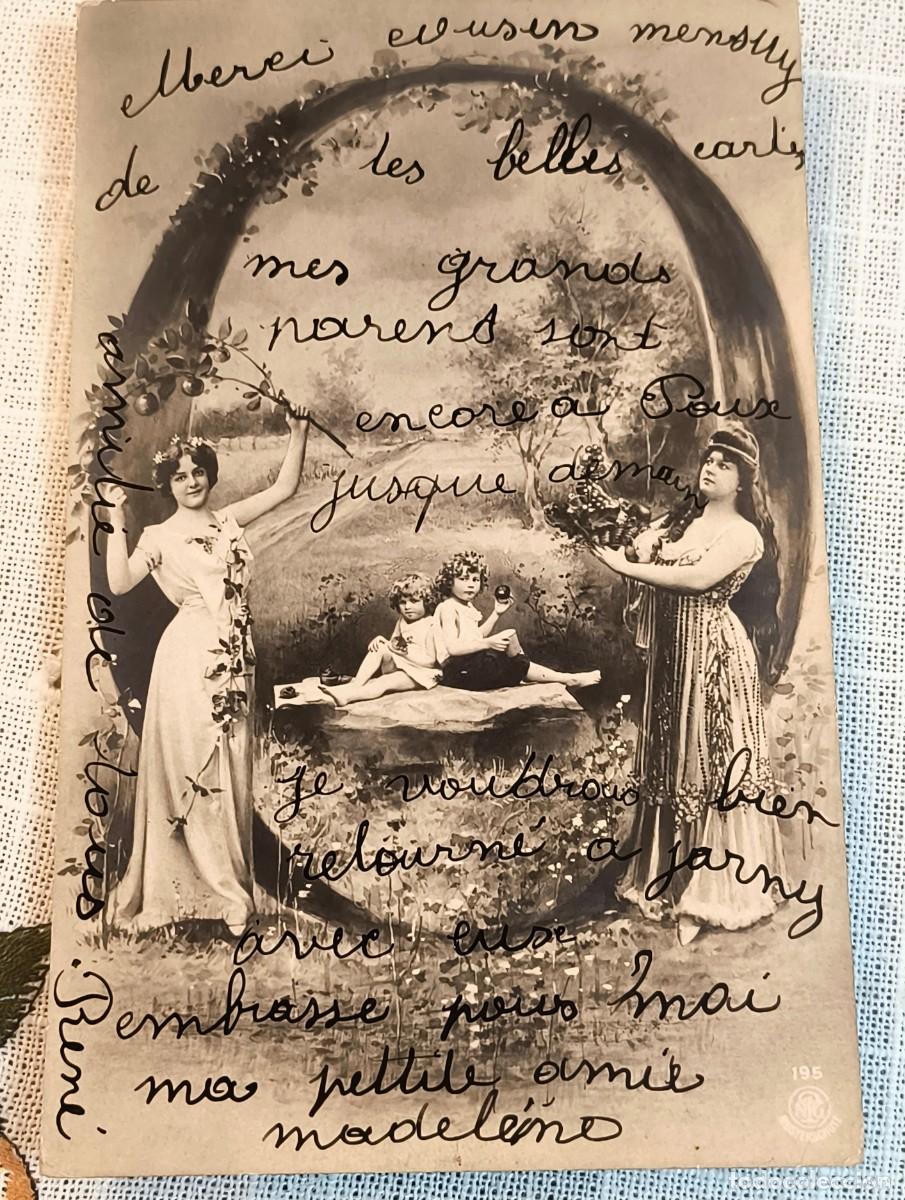 Merci cousin mensuy
de tes belles cartes
mes grands
parens sont
encore a Poux
jusque demain
je voudrais bien
retourné a jarny
avec euse
embrasse pour mai
ma pettite amie
madeleine
amitie de tous
René
195
NPG
todocoleccion